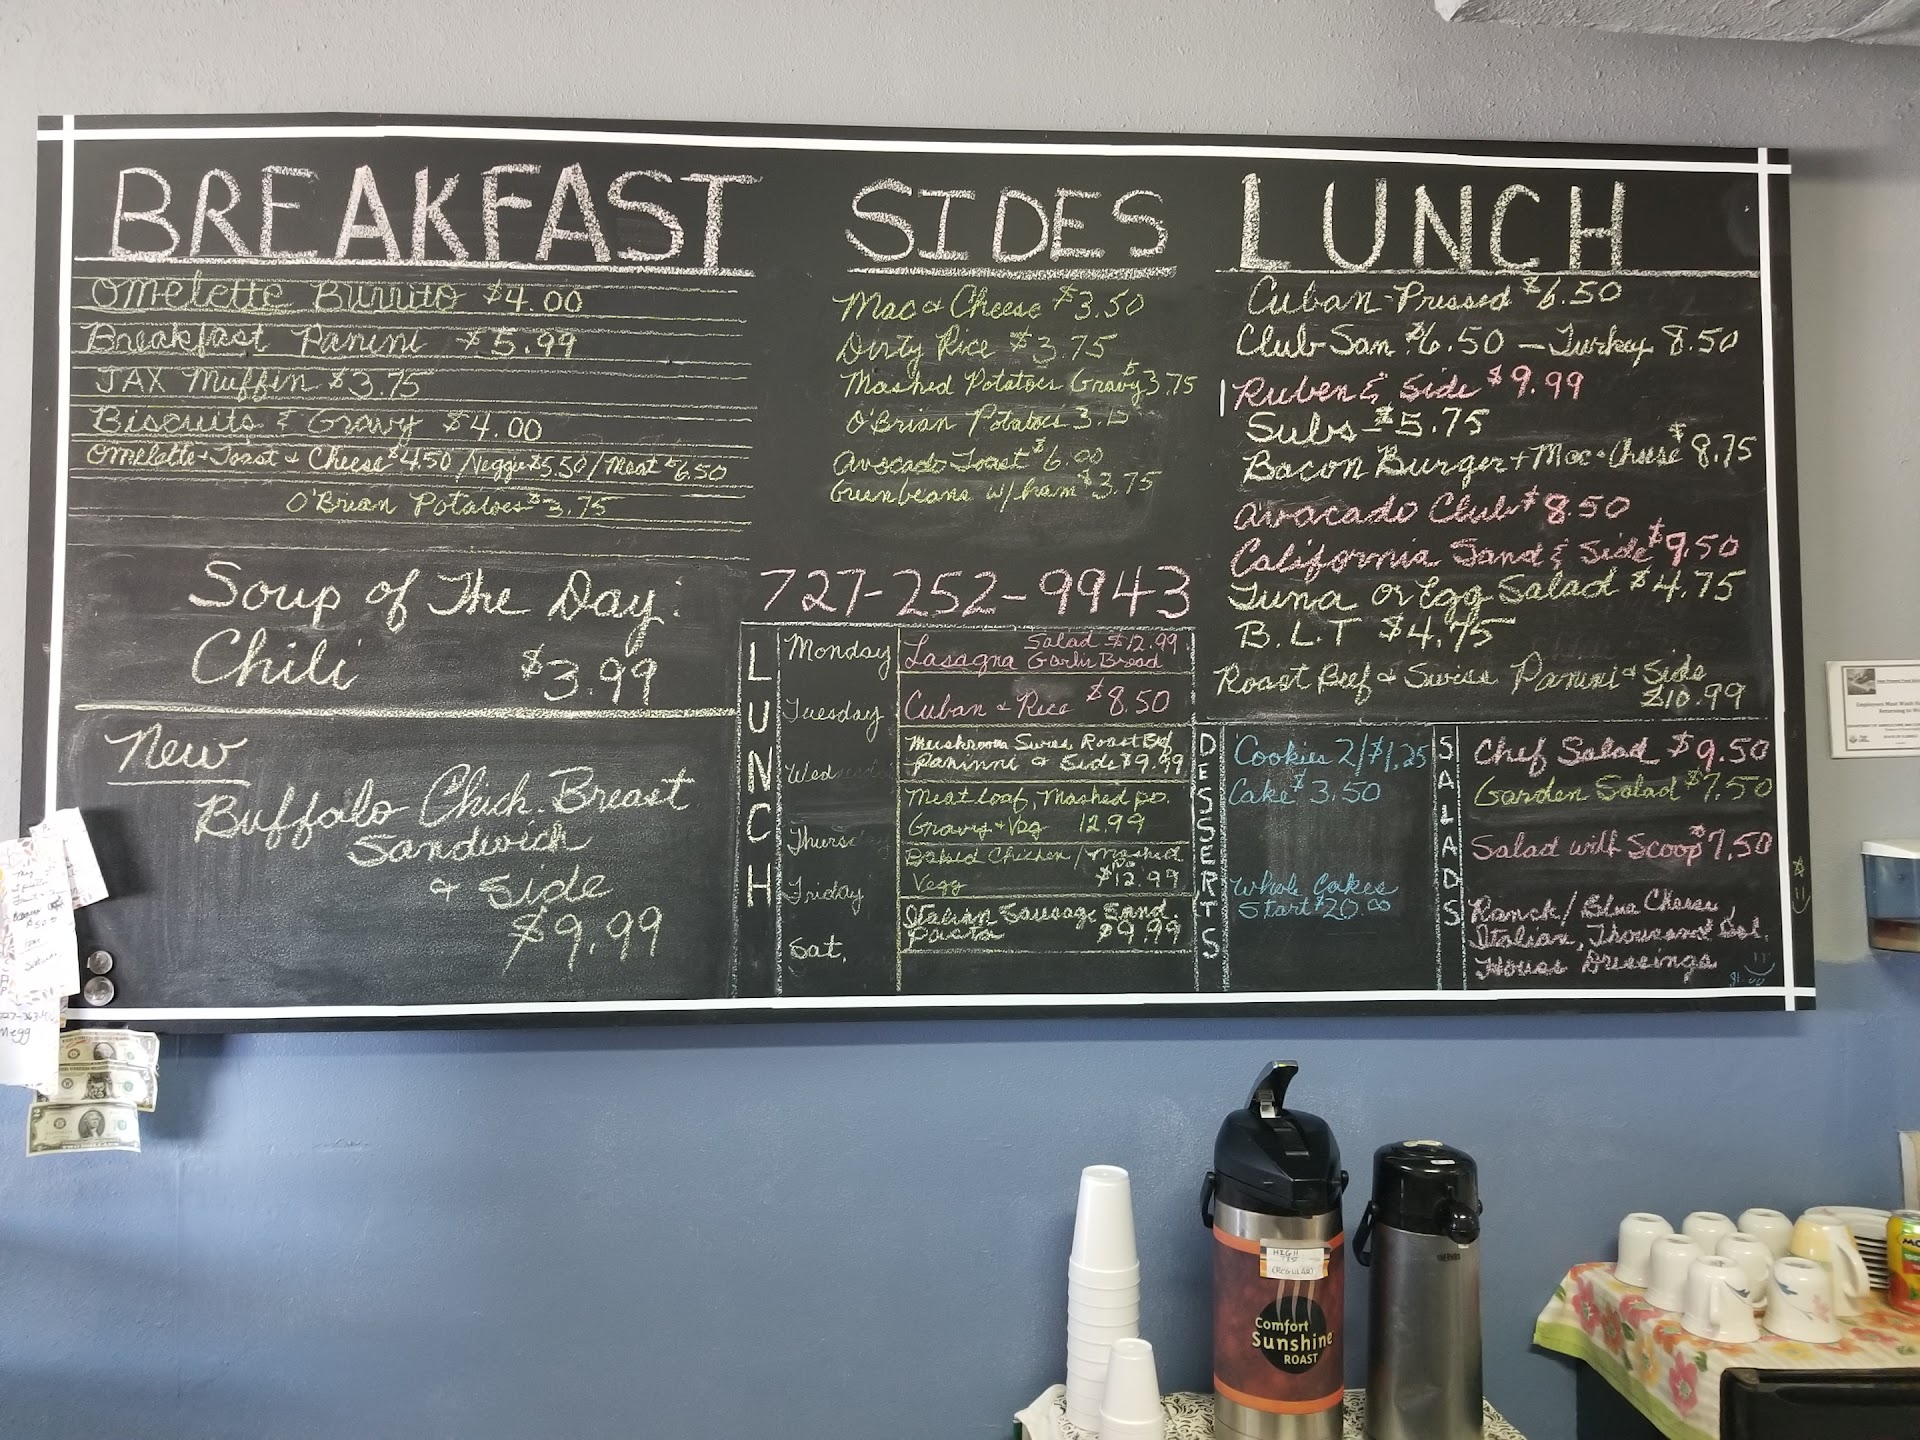 BREAKFAST
Omelette Burrito $4.00
Breakfast Panini $5.99
JAX Muffin $3.75
Biscuits & Gravy $4.00
Omelatte + Toast + Cheese $4.50 / Veggie $5.50 / Meat $6.50
O'Brian Potatoes $3.75
Soup of The Day:
Chili $3.99
New
Buffalo Chick. Breast
Sandwich
& Side
$9.99
SIDES
Mac & Cheese $3.50
Dirty Rice $3.75
Mashed Potatoes Gravy $3.75
O'Brian Potatoes 3.75
Avocado Toast $6.00
Greenbeans w/ham $3.75
727-252-9943
LUNCH
Monday
Lasagna Salad $12.99
Garlic Bread
Tuesday
Cuban & Rice $8.50
Wednesday
Mushroom Swiss Roast Bf
Paninni & Side $9.99
Meatloaf, Mashed po.
Gravy + Veg 12.99
Thursday
Baked Chicken / Mashed
Vegg $12.99
Friday
Italian Sausage Sand.
Pasta $9.99
Sat.
LUNCH
Cuban-Pressed $6.50
Club San $6.50 - Turkey 8.50
Ruben & Side $9.99
Subs $5.75
Bacon Burger + Mac & Cheese $8.75
Avacado Club $8.50
California Sand & Side $9.50
Tuna or Egg Salad $4.75
B.L.T $4.75
Roast Beef & Swiss Panini & Side
$10.99
DESSERTS
Cookies 2/$1.25
Cake $3.50
Whole Cakes
Start $20.00
SALADS
Chef Salad $9.50
Garden Salad $7.50
Salad with Scoop $7.50
Ranch / Blue Cheese,
Italian, Thousand Isl.
House Dressings
727-263-
Megg
Employees Must Wash
Returning to
HIGH
(REGULAR)
Comfort
Sunshine
ROAST